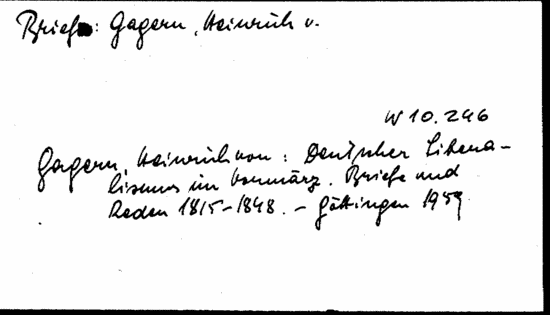 Briefe: Gagern, Heinrich v.
W 10.246
Gagern, Heinrich von: Deutscher Libera-
lismus im Vormärz. Briefe und
Reden 1815-1848. - Göttingen 1959